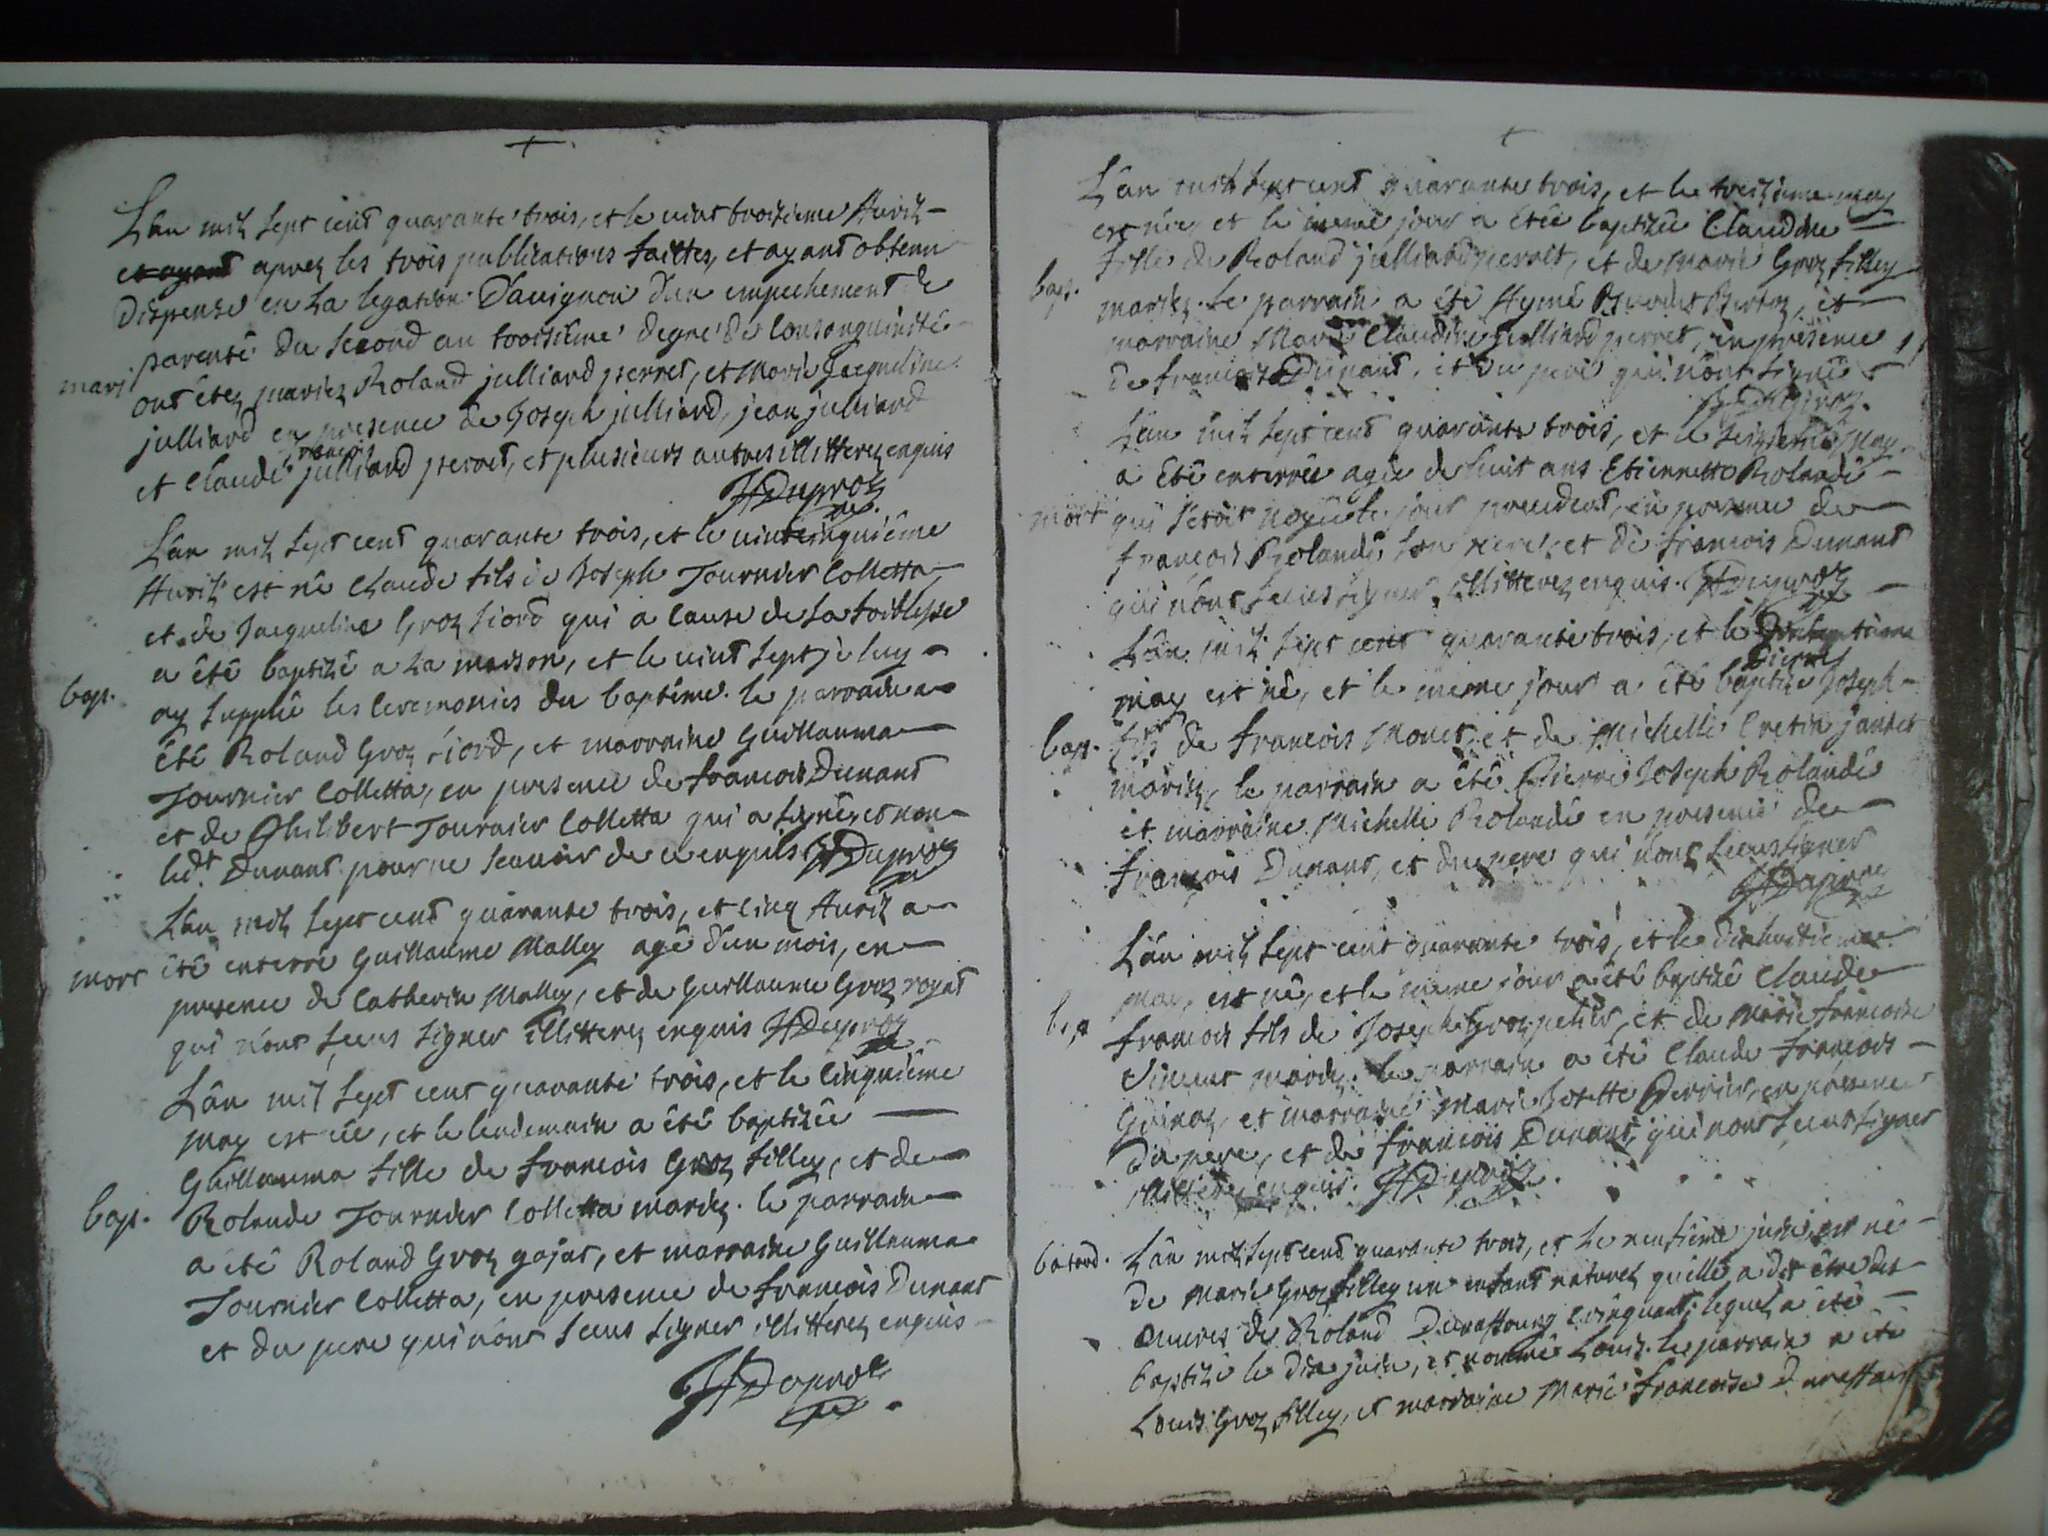 L'an mil sept cent quarante trois, et le vint troisieme Avril
et ayant apres les trois publications faittes, et ayant obtenu
dispense en la legation d'avignon d'un empechement de
parenté du second au troisième degré de consanguinité
mari. ont étez mariez Roland julliard perret, et Marie Jacqueline
julliard en presence de Joseph julliard, jean julliard
françois
et Claude julliard perret, et plusieurs autres illitterez enquis
Duproz
L'an mil sept cent quarante trois, et le vintcinquième
Avril est né Claude fils de Joseph Tournier Colletta
et de Jacqueline Groz fiord qui a cause de sa foiblesse
a été baptizé a la maison, et le vint sept je luy
bap. ay supplié les ceremonies du baptéme. le parrain a
été Roland Groz fiord, et marraine Guillauma
Tournier Colletta, en presence de francois Dunant
et de Philibert Tournier Colletta qui a signé, et non
ledt Dunant pour ne scavoir de ce enquis Duproz
L'an mil sept cent quarante trois, et cinq Avril a
mort été enterré Guillaume Malley agé d'un mois, en
presence de Catherin Malley, et de Guillaume Groz royat
qui n'ont sceus signer illitterez enquis Duproz
L'an mil sept cent quarante trois, et le cinquième
may est née, et le lendemain a été baptizée
Guillauma fille de francois Groz filley, et de
bap. Rolande Tournier Colletta mariez. le parrain
a été Roland Groz gojat, et marraine Guillauma
Tournier Colletta, en presence de francois Dunant
et du pere qui n'ont sceus signer illitterez enquis
Duproz
L'an mil sept cent quarante trois, et le treizieme may
est née, et le meme jour a étée baptizée Claudine
fille de Roland julliard perret, et de Marie Groz filley
bap. mariez. le parrain a été Aymé et
marraine Marie Claudine julliard perret, en présence
de francois Dunant, et du pere qui n'ont signé
Duproz.
L'an mil sept cent quarante trois, et le may
a été enterrée agée de huit ans Etiennette Rolandé
mort qui s'etoit noyée le jour precedent, en presence de
françois Rolandé son et de francois Dunant
qui n'ont sceus signer, illitterez enquis. Duproz
L'an mil sept cent quarante trois, et le
pierre
may est né, et le meme jour a été baptizé Joseph
bap. fils de francois Monet, et de Michelle Cretin jantet
mariez, le parrain a été Pierre Joseph Rolandé
et marraine Michelle Rolandé en presence de
françois Dunant, et du pere qui n'ont sceus signer
Duproz
L'an mil sept cent quarante trois, et le dixhuitieme
may, est né, et le meme jour a été baptizé Claude
bap francois fils de Joseph Groz petit, et de Marie francoise
Vincent mariez. le parrain a été Claude francois
et marraine Marie Josette Perrier, en présence
du pere, et de francois Dunant, qui n'ont sceus signer
illitterez enquis. Duproz.
batard. L'an mil sept cent quarante trois, et le neufième juin est né
de Marie Groz filley un enfant naturel qu'elle a dit être des
œuvres de Roland Duraffourg lequel a été
baptizé le dix juin, et nommé Louis. le parrain a été
Louis Groz filley, et marraine Marie francoise Duraffourg